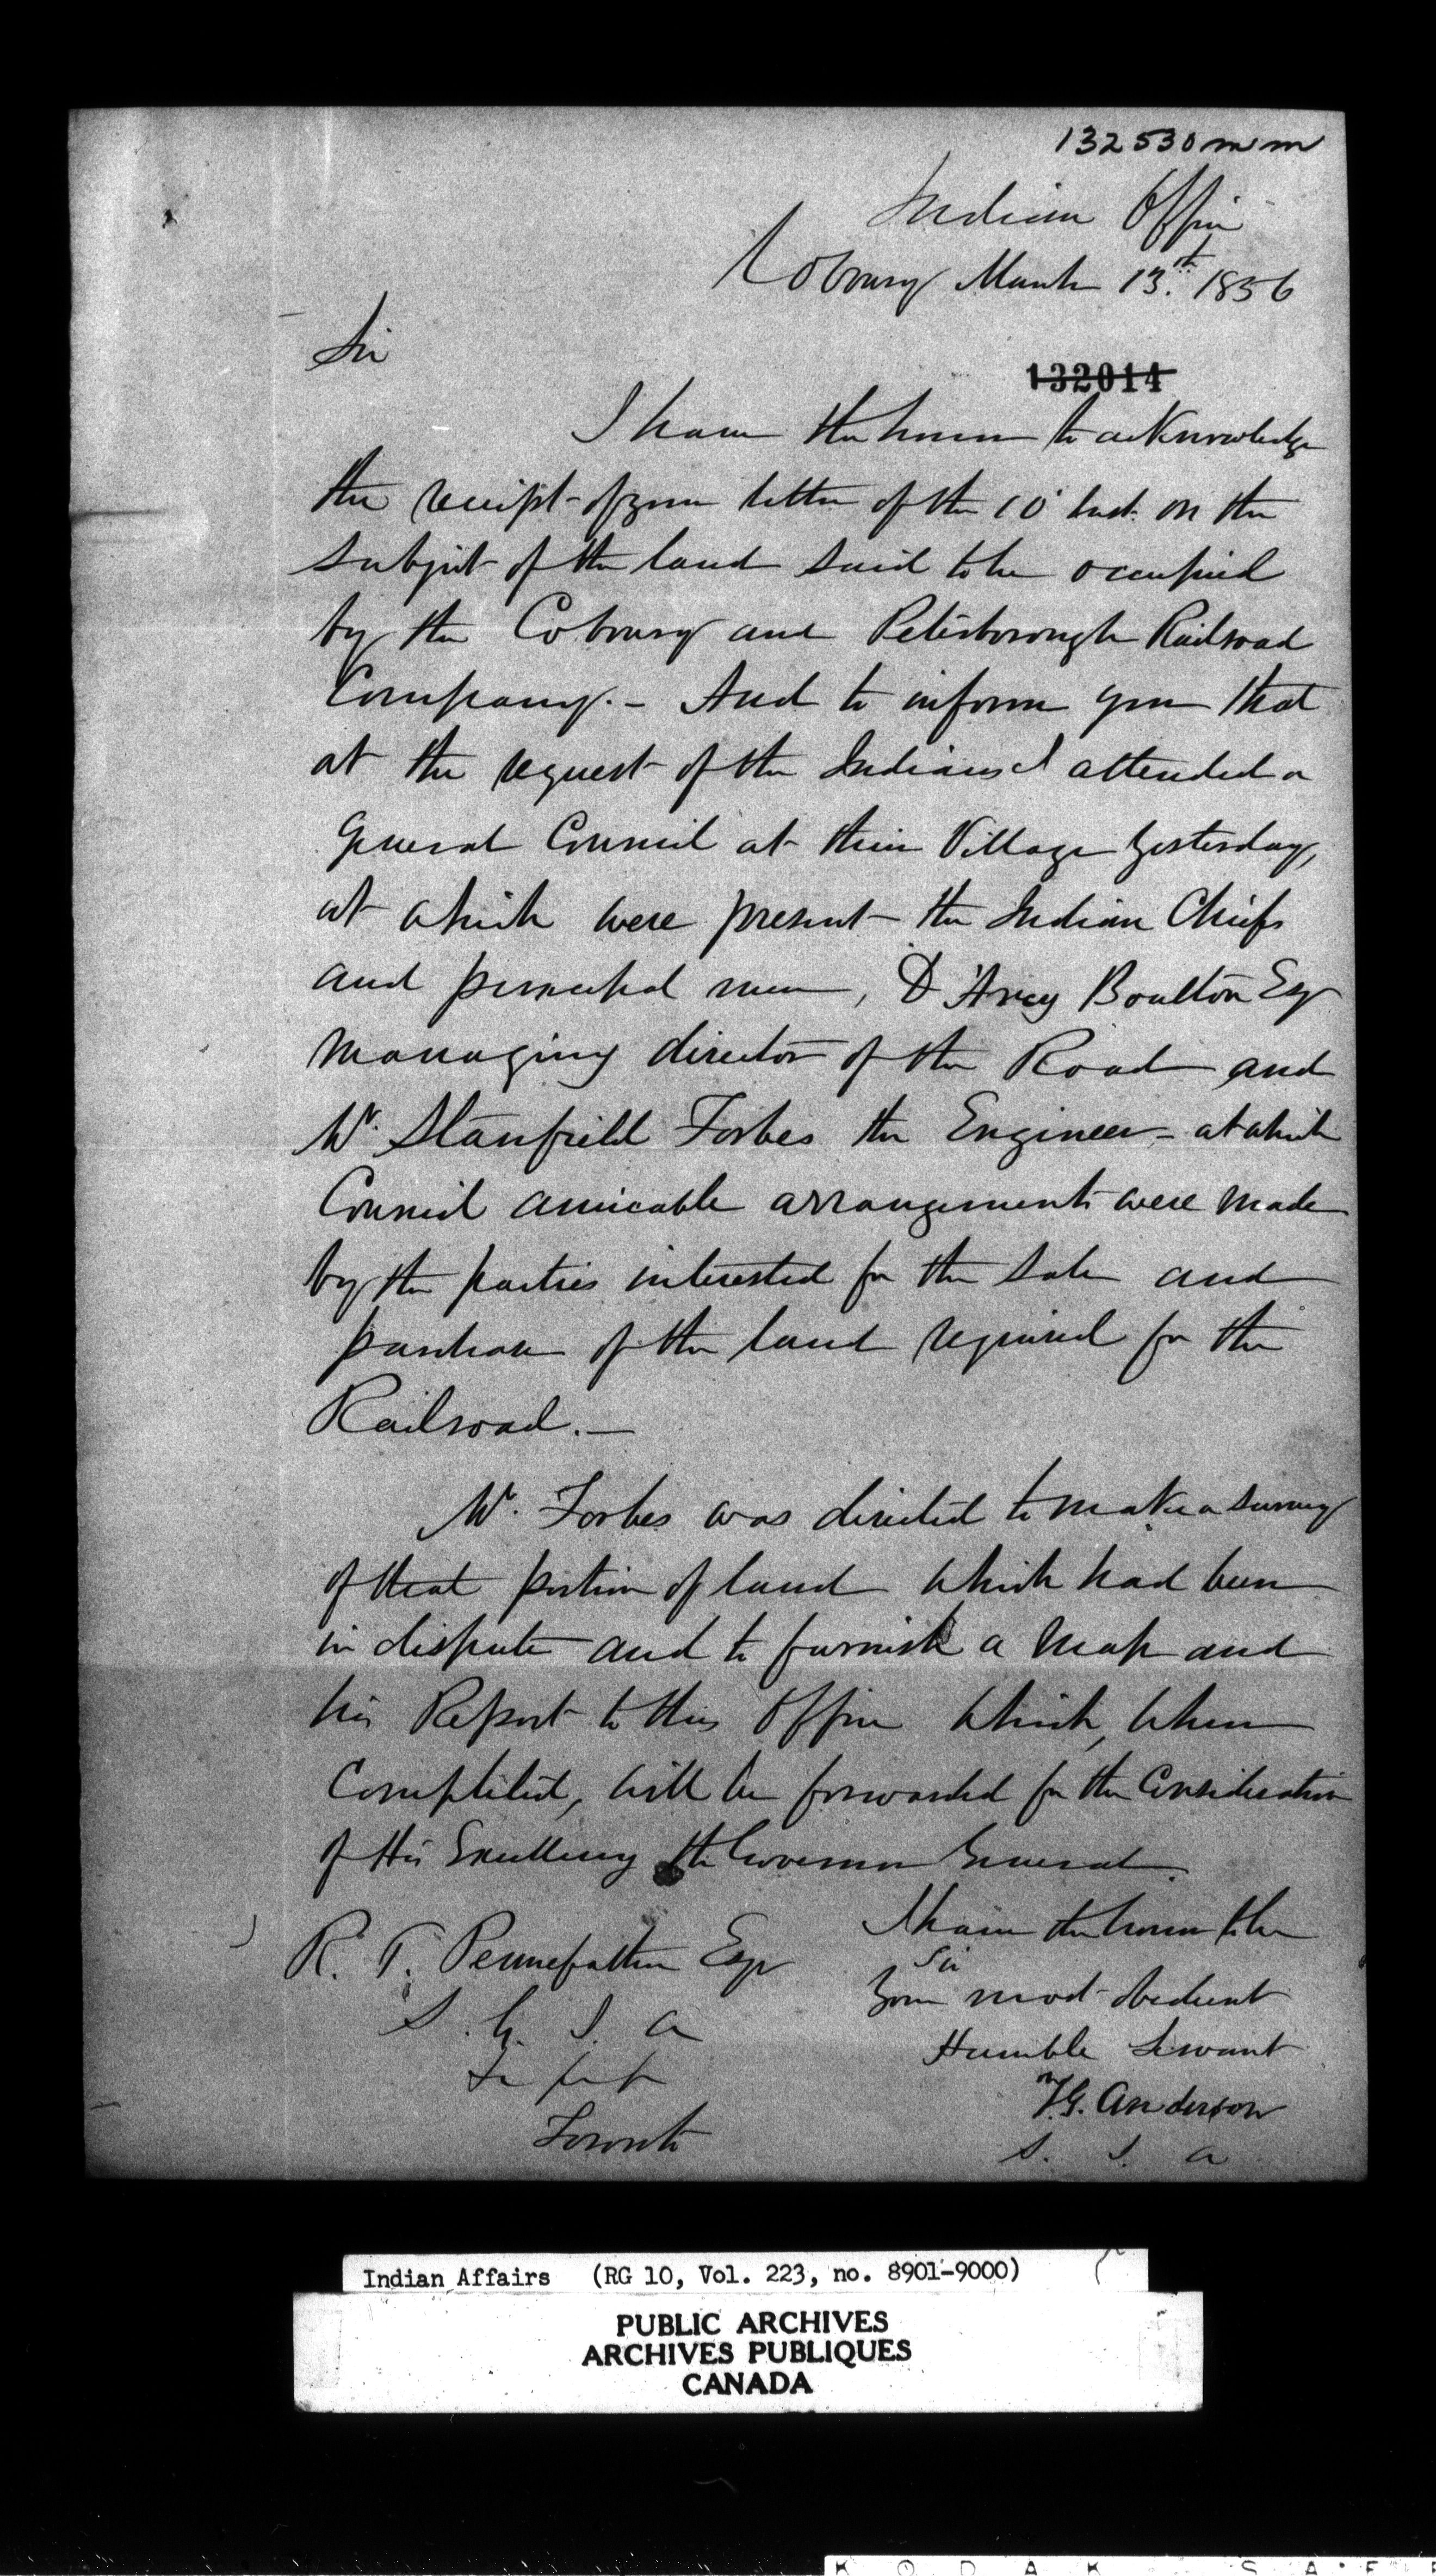 132530 mm
Indian Office
Cobourg March 13th. 1856
Sir
132014
I have the honor to acknowledge
the receipt of your letter of the 10' Inst. on the
subject of the land said to be occupied
by the Cobourg and Peterborough Railroad
Company. - And to inform you that
at the request of the Indians I attended a
General Council at their Village Yesterday,
at which were present the Indian Chiefs
and principal men, D'Arcy Boulton Esqr
Managing director of the Road and
Mr. Stanfield Forbes the Engineer - at which
Council amicable arrangements were made
by the parties interested for the sale and
purchase of the land required for the
Railroad. -
Mr. Forbes was directed to make a survey
of that portion of land which had been
in dispute and to furnish a Map and
his Report to this Office which, when
Completed, will be forwarded for the Consideration
of His Excellency the Governor General.
I have the honor to be
Sir
Your most obedient
Humble Servant
T. G. Anderson
S. I. A
R. T. Pennefather Esqr
S. G. I. A
Toronto
Indian Affairs (RG 10, Vol. 223, no. 8901-9000)
PUBLIC ARCHIVES
ARCHIVES PUBLIQUES
CANADA
KODAK SAFE